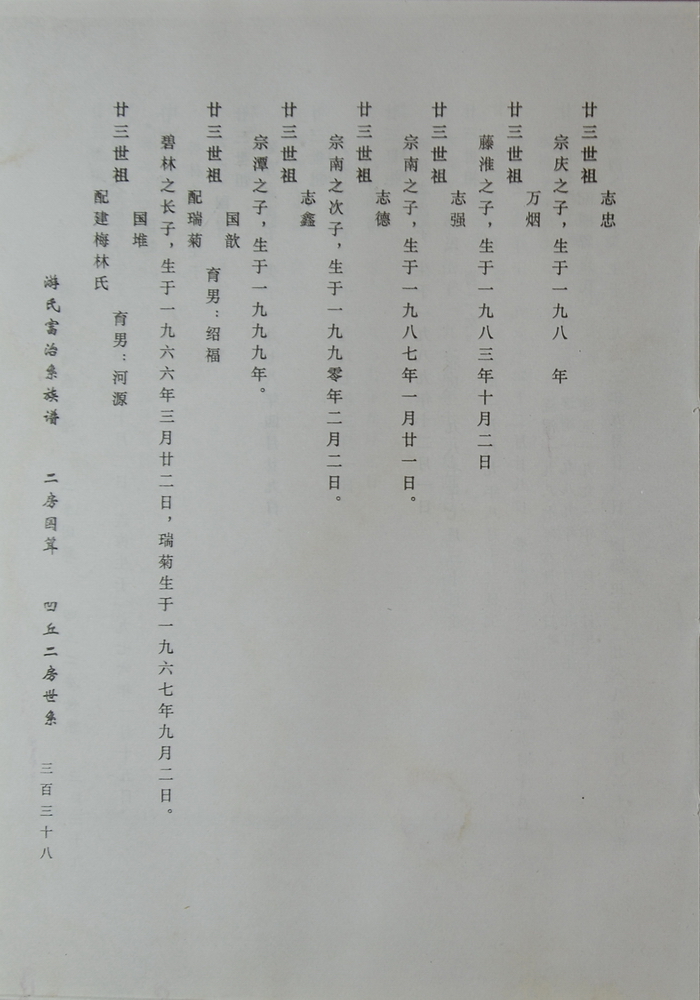 志忠
廿三世祖
宗庆之子，生于一九八 年
万烟
廿三世祖
藤淮之子，生于一九八三年十月二日
志强
廿三世祖
宗南之子，生于一九八七年一月廿一日。
志德
廿三世祖
宗南之次子，生于一九九零年二月二日。
志鑫
廿三世祖
宗潭之子，生于一九九九年。
国歆 育男：绍福
廿三世祖
配瑞菊
碧林之长子，生于一九六六年三月廿二日，瑞菊生于一九六七年九月二日。
国堆 育男：河源
廿三世祖
配建梅林氏
游氏富治系族谱 二房国茸 凹丘二房世系 三百三十八